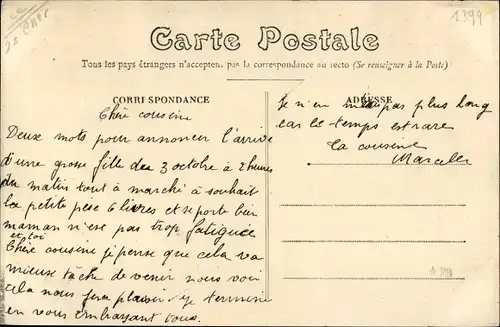 1399
Carte Postale
Tous les pays étrangers n'acceptent pas la correspondance au recto (Se renseigner à la Poste)
CORRESPONDANCE
Chère cousine
Deux mots pour annoncer l'arrivée
d'une grosse fille des 3 octobre à 2 heures
du matin tout à marché à souhait
la petite pèse 6 livres et se porte bien
maman n'est pas trop fatiguée
et toi
Chère cousine je pense que cela va
mieux tâche de venir nous voir
cela nous fera plaisir je termine
en vous embrassant tous.
ADRESSE
Je n'en mets pas plus long
car le temps est rare
ta cousine